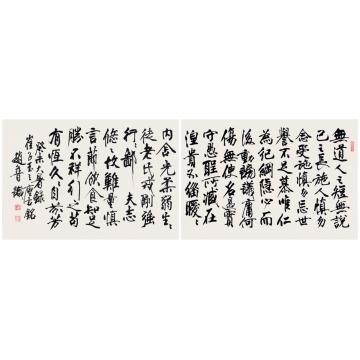 無道人之短無說
己之長施人慎勿
念受施慎勿忘世
譽不足慕唯仁
為紀綱隱心而
後動謗議庸何
傷無使名過實
守愚聖所臧在
涅貴不緇曖〻
內含光柔弱生之
徒老氏戒剛強
行〻鄙夫志
悠〻故難量慎
言節飲食知足
勝不祥行之苟
有恆久〻自芬芳
癸未大暑錄
崔子玉座右銘
趙